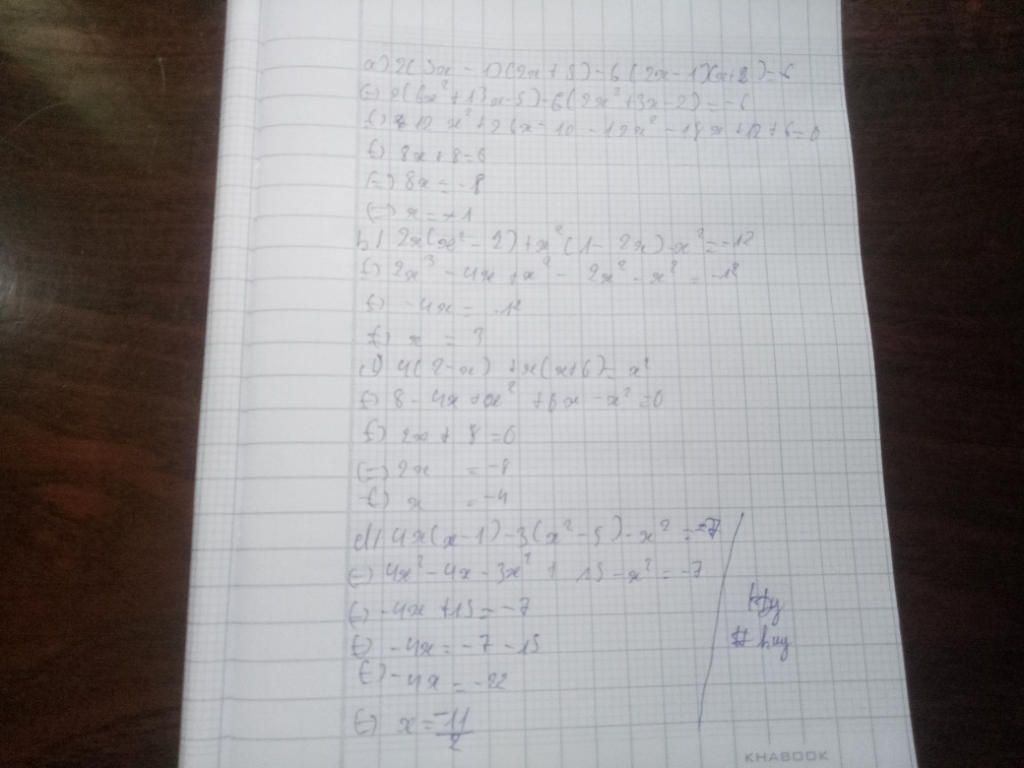 a) 2(3x - 1)(2x + 5) - 6(2x - 1)(x + 2) = -6
(=) 2(6x² + 13x - 5) - 6(2x² + 3x - 2) = -6
(=) 12x² + 26x - 10 - 12x² - 18x + 12 + 6 = 0
(=) 8x + 8 = 0
(=) 8x = -8
(=) x = -1
b) 2x(x² - 2) + x²(1 - 2x) - x² = -12
(=) 2x³ - 4x + x² - 2x² - x² = -12
(=) -4x = -12
(=) x = 3
c) 4(2 - x) + x(x + 6) = x²
(=) 8 - 4x + x² + 6x - x² = 0
(=) 2x + 8 = 0
(=) 2x = -8
(=) x = -4
d) 4x(x - 1) - 3(x² - 5) - x² = -7
(=) 4x² - 4x - 3x² + 15 - x² = -7
(=) -4x + 15 = -7
(=) -4x = -7 - 15
(=) -4x = -22
(=) x = -11/2
# huy
KHABOOK